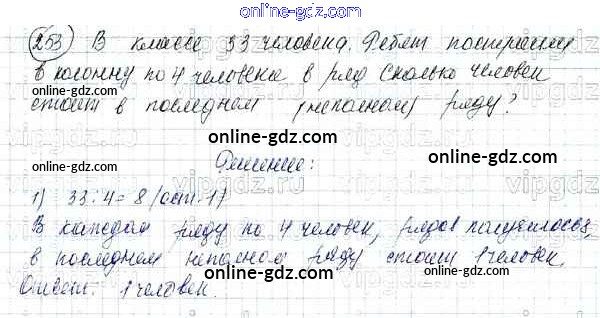 online-gdz.com
253 В классе 33 человека. Ребят построили
в колонну по 4 человека в ряд Сколько человек
стоит в последнем (неполном) ряду?
online-gdz.com
Решение:
online-gdz.com
1) 33:4=8 (ост. 1)
online-gdz.com
В каждом ряду по 4 человек, рядов получилось 8,
в последнем неполном ряду стоит 1 человек.
online-gdz.com
Ответ: 1 человек.
online-gdz.com